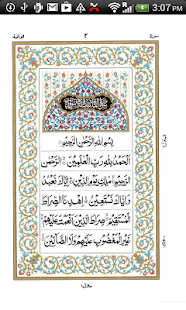 3:07 PM
سورة
٢
بِسْمِ اللهِ الرَّحْمٰنِ الرَّحِيْمِ
اَلْحَمْدُ لِلّٰهِ رَبِّ الْعٰلَمِيْنَ ۙ الرَّحْمٰنِ
الرَّحِيْمِ ۙ مٰلِكِ يَوْمِ الدِّيْنِ ؕ اِيَّاكَ نَعْبُدُ
وَاِيَّاكَ نَسْتَعِيْنُ ؕ اِهْدِنَا الصِّرَاطَ
الْمُسْتَقِيْمَ ۙ صِرَاطَ الَّذِيْنَ اَنْعَمْتَ عَلَيْهِمْ
غَيْرِ الْمَغْضُوْبِ عَلَيْهِمْ وَلَا الضَّآلِّيْنَ